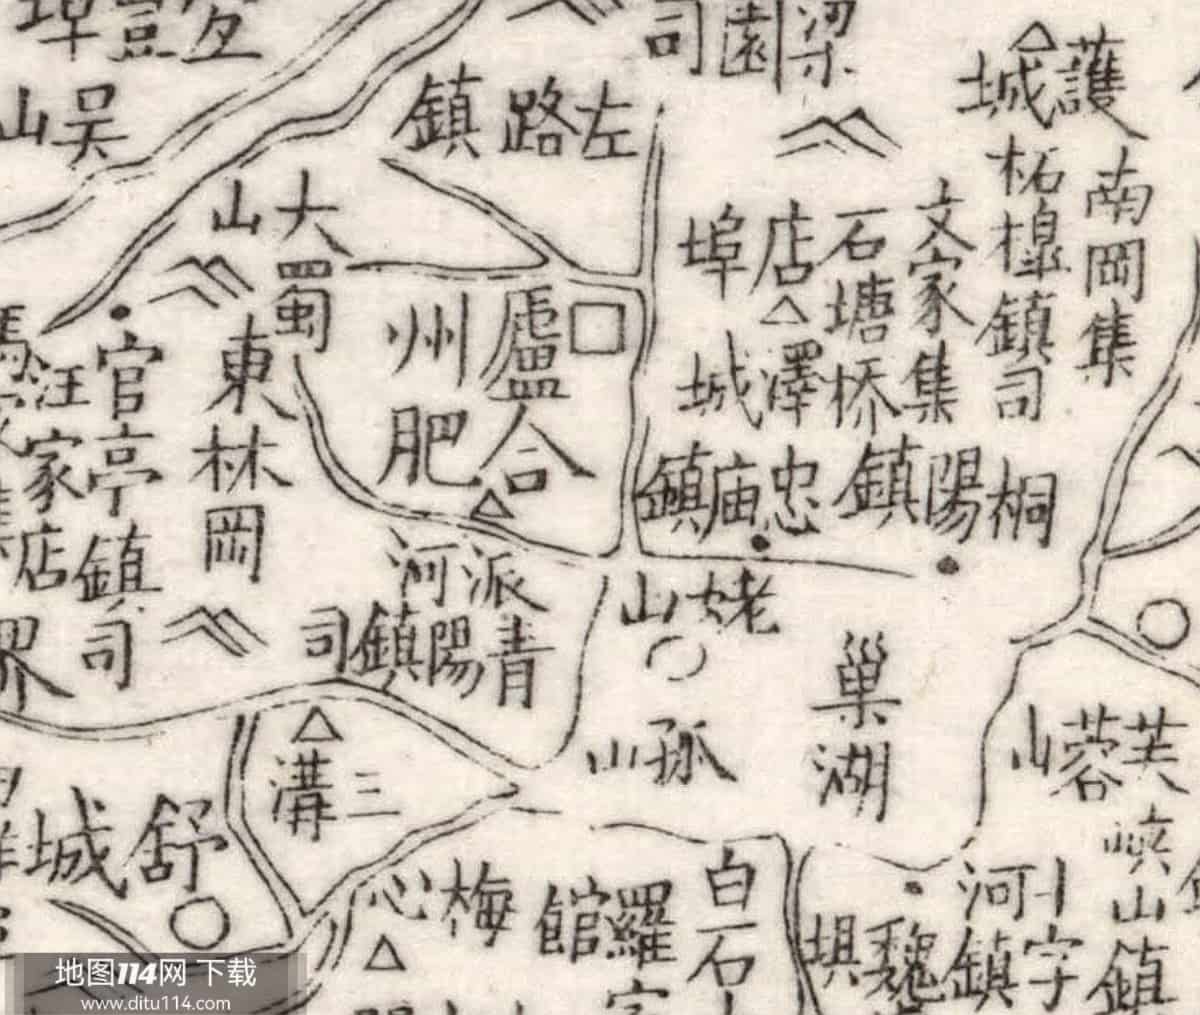 梁園司
護城
左路鎮
吴山
大蜀山
柘槹鎮司
南岡集
文家集
石塘橋
店埠
澤城
廬州
合肥
東林岡
官亭鎮司
汪家店
桐陽鎮
忠庙鎮
派河
青陽鎮司
姥山
孤山
巢湖
芙蓉山
三溝
舒城
梅心
羅館
白石
魏
十字河鎮
峽山鎮
地图114网 下载
www.ditu114.com